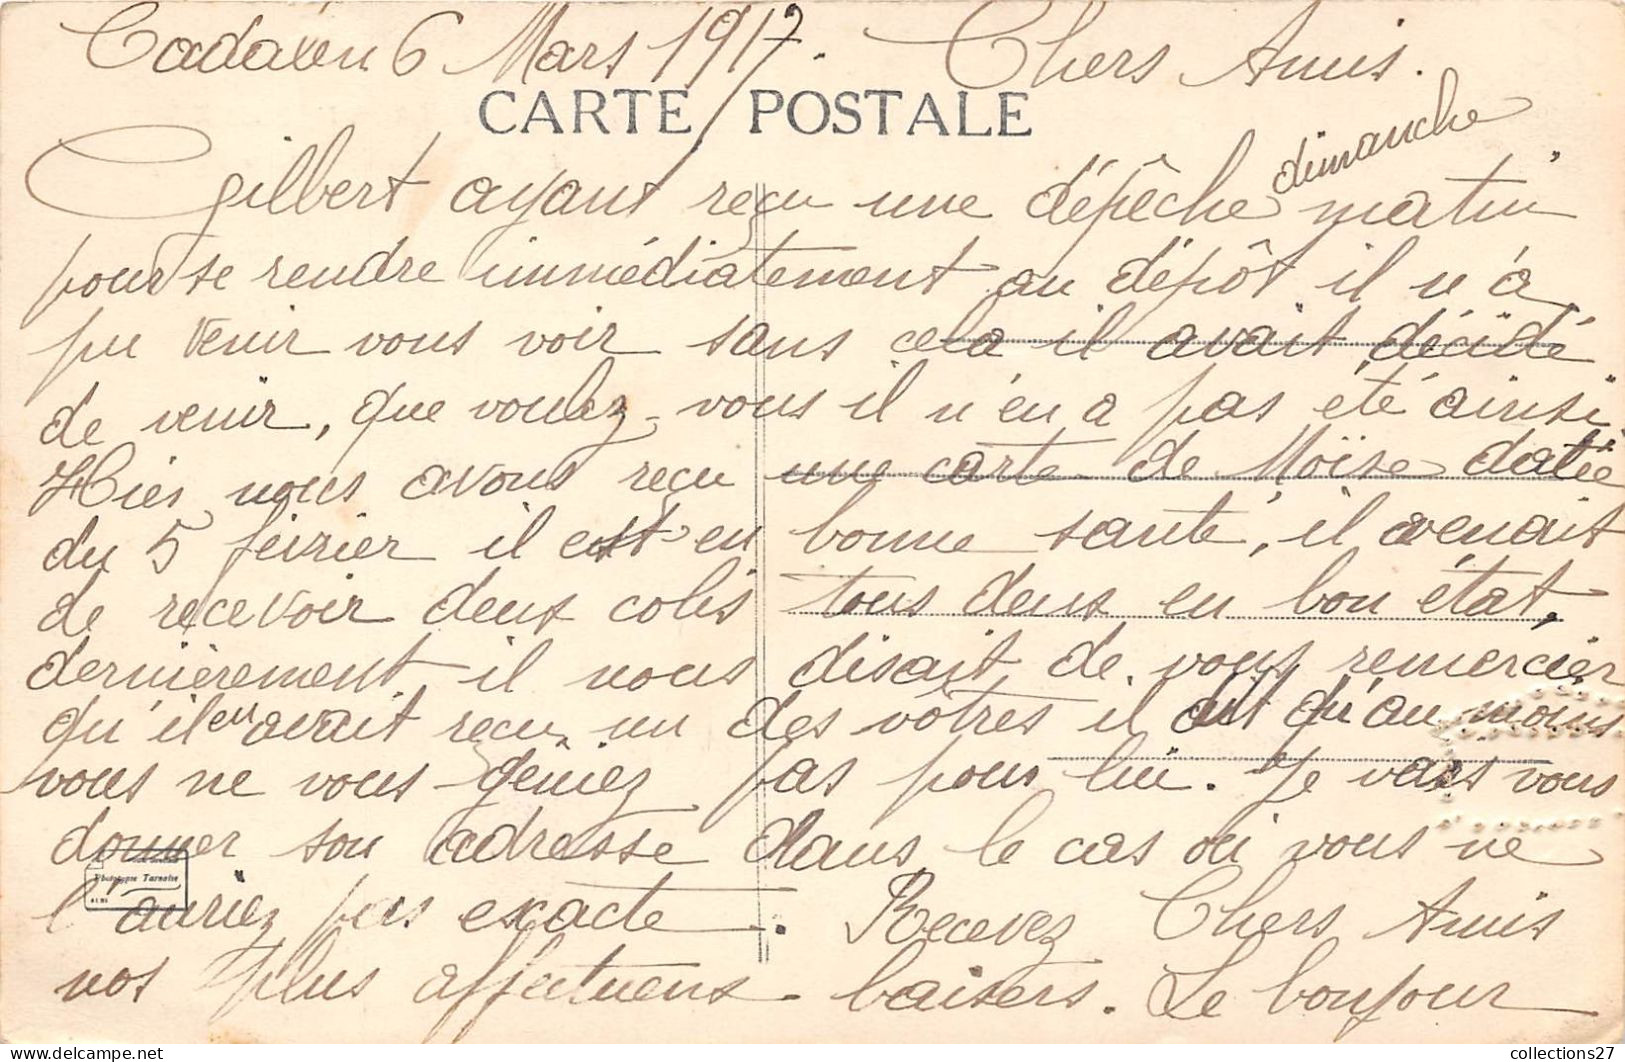 Cadalen 6 Mars 1917. Chers Amis.
CARTE POSTALE
Gilbert ayant reçu une dépêche dimanche matin
pour se rendre immédiatement au dépôt il n'a
pu venir vous voir sans cela il avait décidé
de venir, que voulez-vous il n'en a pas été ainsi.
Hier nous avons reçu une carte de Moïse datée
du 5 février il est en bonne santé, il venait
de recevoir deux colis tous deux en bon état,
dernièrement il nous disait de vous remercier
qu'il en avait reçu un des vôtres il dit qu'au moins
vous ne vous gêniez pas pour lui. Je vais vous
donner son adresse dans le cas où vous ne
l'auriez pas exacte. Recevez Chers Amis
nos plus affectueux baisers. Le bonjour
Phototypie Tarnaise
ALBI
collections27